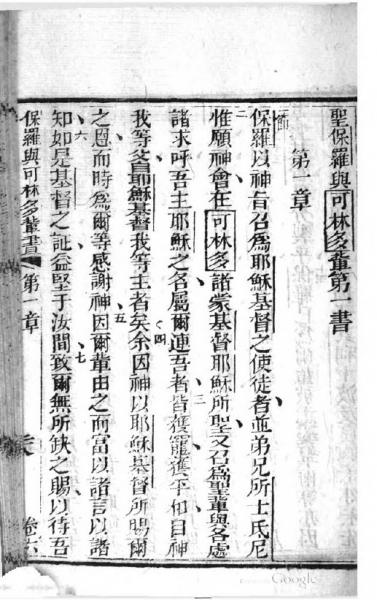 聖保羅與可林多輩第一書
第一章
保羅以神旨召為耶穌基督之使徒者並弟兄所士氐尼
惟願神會在可林多諸蒙基督耶穌所聖又召為聖輩與各處
諸求呼吾主耶穌之名屬爾連吾者皆獲寵獲平和自神
我等父且耶穌基督我等主者矣余因神以耶穌基督所賜爾
之恩而時為爾等感謝神因爾輩由之而富以諸言以諸
知如是基督之証益堅于汝間致爾無所缺之賜以待吾
保羅與可林多輩書 第一章 卷六
Google